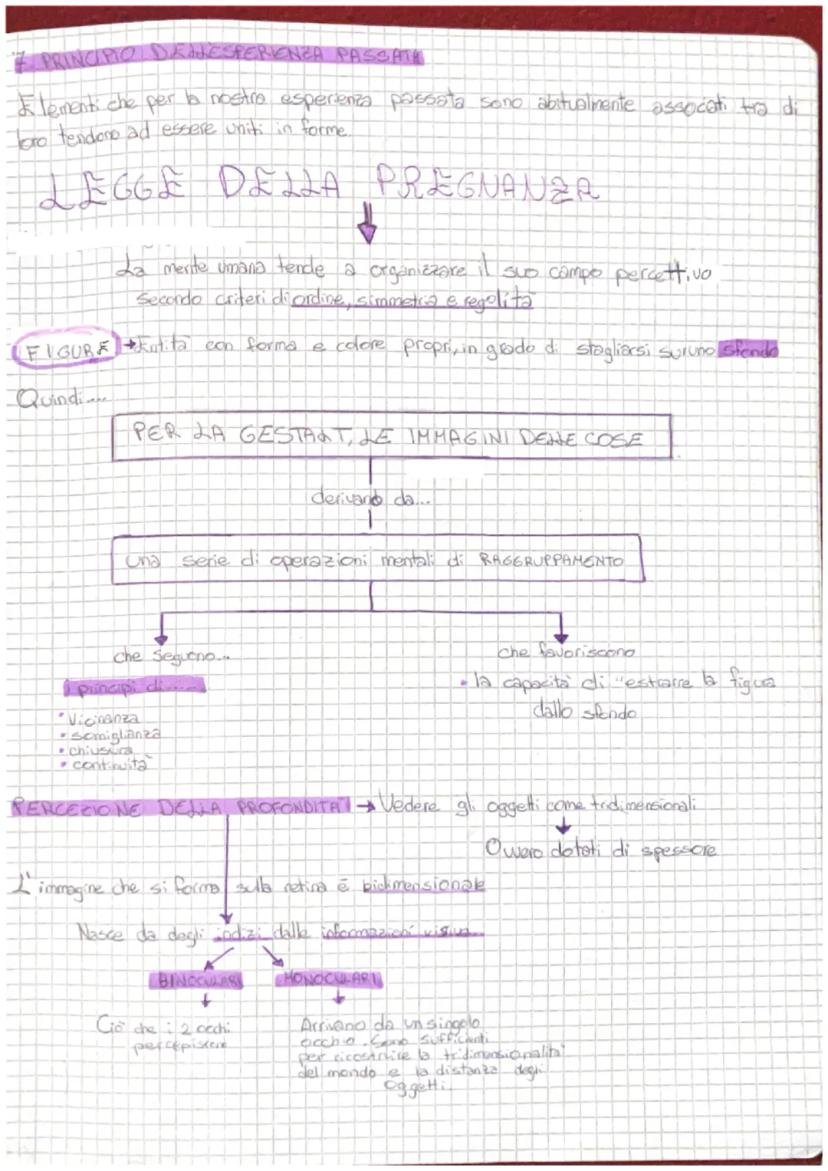 7 PRINCIPIO DELL'ESPERIENZA PASSATA
Elementi che per la nostra esperienza passata sono abitualmente associati tra di
loro tendono ad essere uniti in forme
LEGGE DELLA PREGNANZA
La mente umana tende a organizzare il suo campo percettivo
secondo criteri di ordine, simmetria e regolità
FIGURE → Entità con forma e colore propri, in grado di stagliarsi su uno sfondo
Quindi....
PER LA GESTALT, LE IMMAGINI DELLE COSE
derivano da...
una serie di operazioni mentali di RAGGRUPPAMENTO
che seguono...
che favoriscono
i principi di.....
• la capacità di "estrarre la figura
dallo sfondo
• Vicinanza
• somiglianza
• chiusura
• continuità
PERCEZIONE DELLA PROFONDITÀ → Vedere gli oggetti come tridimensionali
Ovvero dotati di spessore
L'immagine che si forma sulla retina è bidimensionale
Nasce da degli indizi dalle informazioni visive...
BINOCULARI MONOCULARI
Ciò che i 2 occhi
percepiscono
Arrivano da un singolo
occhio. Sono sufficienti
per ricostruire la tridimensionalità
del mondo e la distanza degli
oggetti.